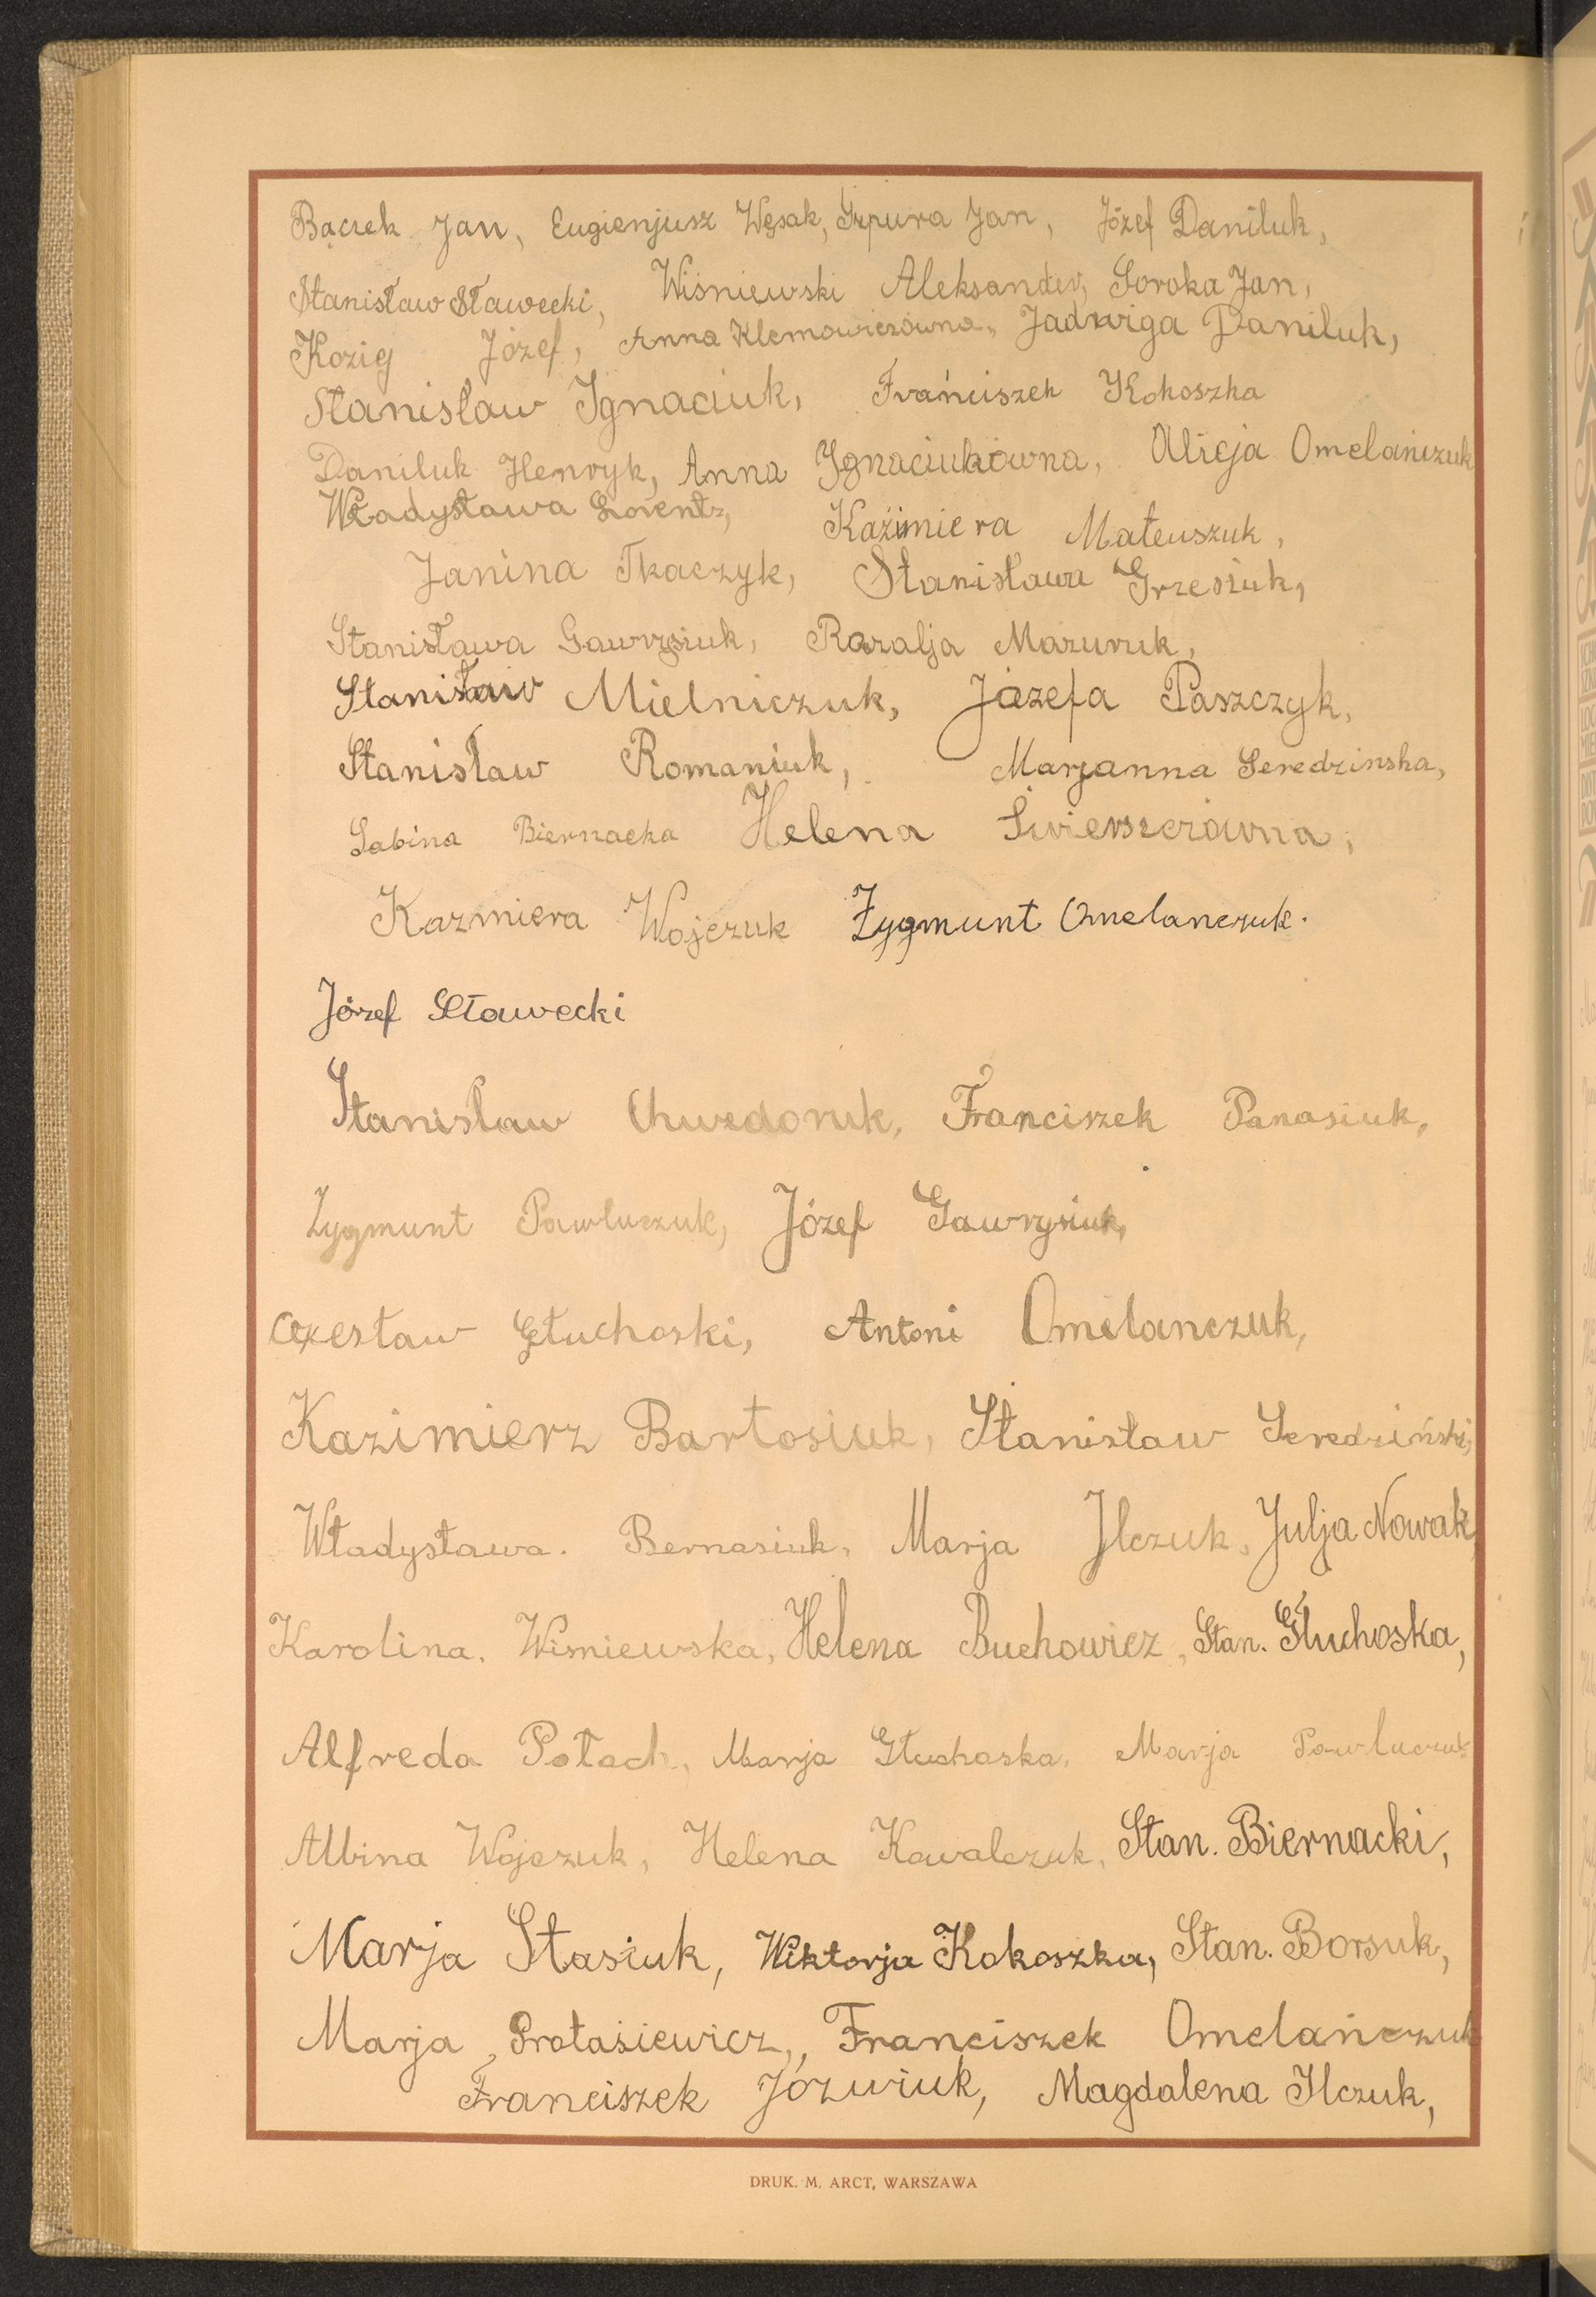 Bączek Jan, Eugienjusz Węsak, Grpura Jan, Józef Daniluk,
Stanisław Sławecki, Wiśniewski Aleksander, Soroka Jan,
Kozig Józef, Anna Klemowiczówna, Jadwiga Daniluk,
Stanisław Ignaciuk, Frańciszek Kokoszka
Daniluk Henryk, Anna Ignaciukówna, Alicja Omelańczuk
Władysława Lorentz, Kaźimiera Mateuszuk,
Janina Tkaczyk, Stanisława Grzesiuk,
Stanisława Gawrysiuk, Rozalja Mazuruk,
Stanisław Mielniczuk, Józefa Paszczyk,
Stanisław Romaniuk, Marjanna Seredzinska,
Sabina Biernacka Helena Świerszczówna,
Kazmiera Wojczuk Zygmunt Omelanczuk.
Józef Sławecki
Stanisław Chwedoruk, Franciszek Panasiuk,
Zygmunt Pawluczuk, Józef Gawrysiuk,
Czesław Głuchoski, Antoni Omelanczuk,
Kazimierz Bartosiuk, Stanisław Seredziński,
Władysława. Bernasiuk, Marja Ilczuk, Julja Nowak,
Karolina. Wisniewska, Helena Buchowicz, Stan. Głuchoska,
Alfreda Połach, Marja Głuchoska, Marja Pawluczuk
Albina Wojczuk, Helena Kowalczuk, Stan. Biernacki,
Marja Stasiuk, Wiktorja Kokoszka, Stan. Borsuk,
Marja Protasiewicz, Franciszek Omelańczuk
Franciszek Józwiuk, Magdalena Ilczuk,
DRUK. M. ARCT, WARSZAWA